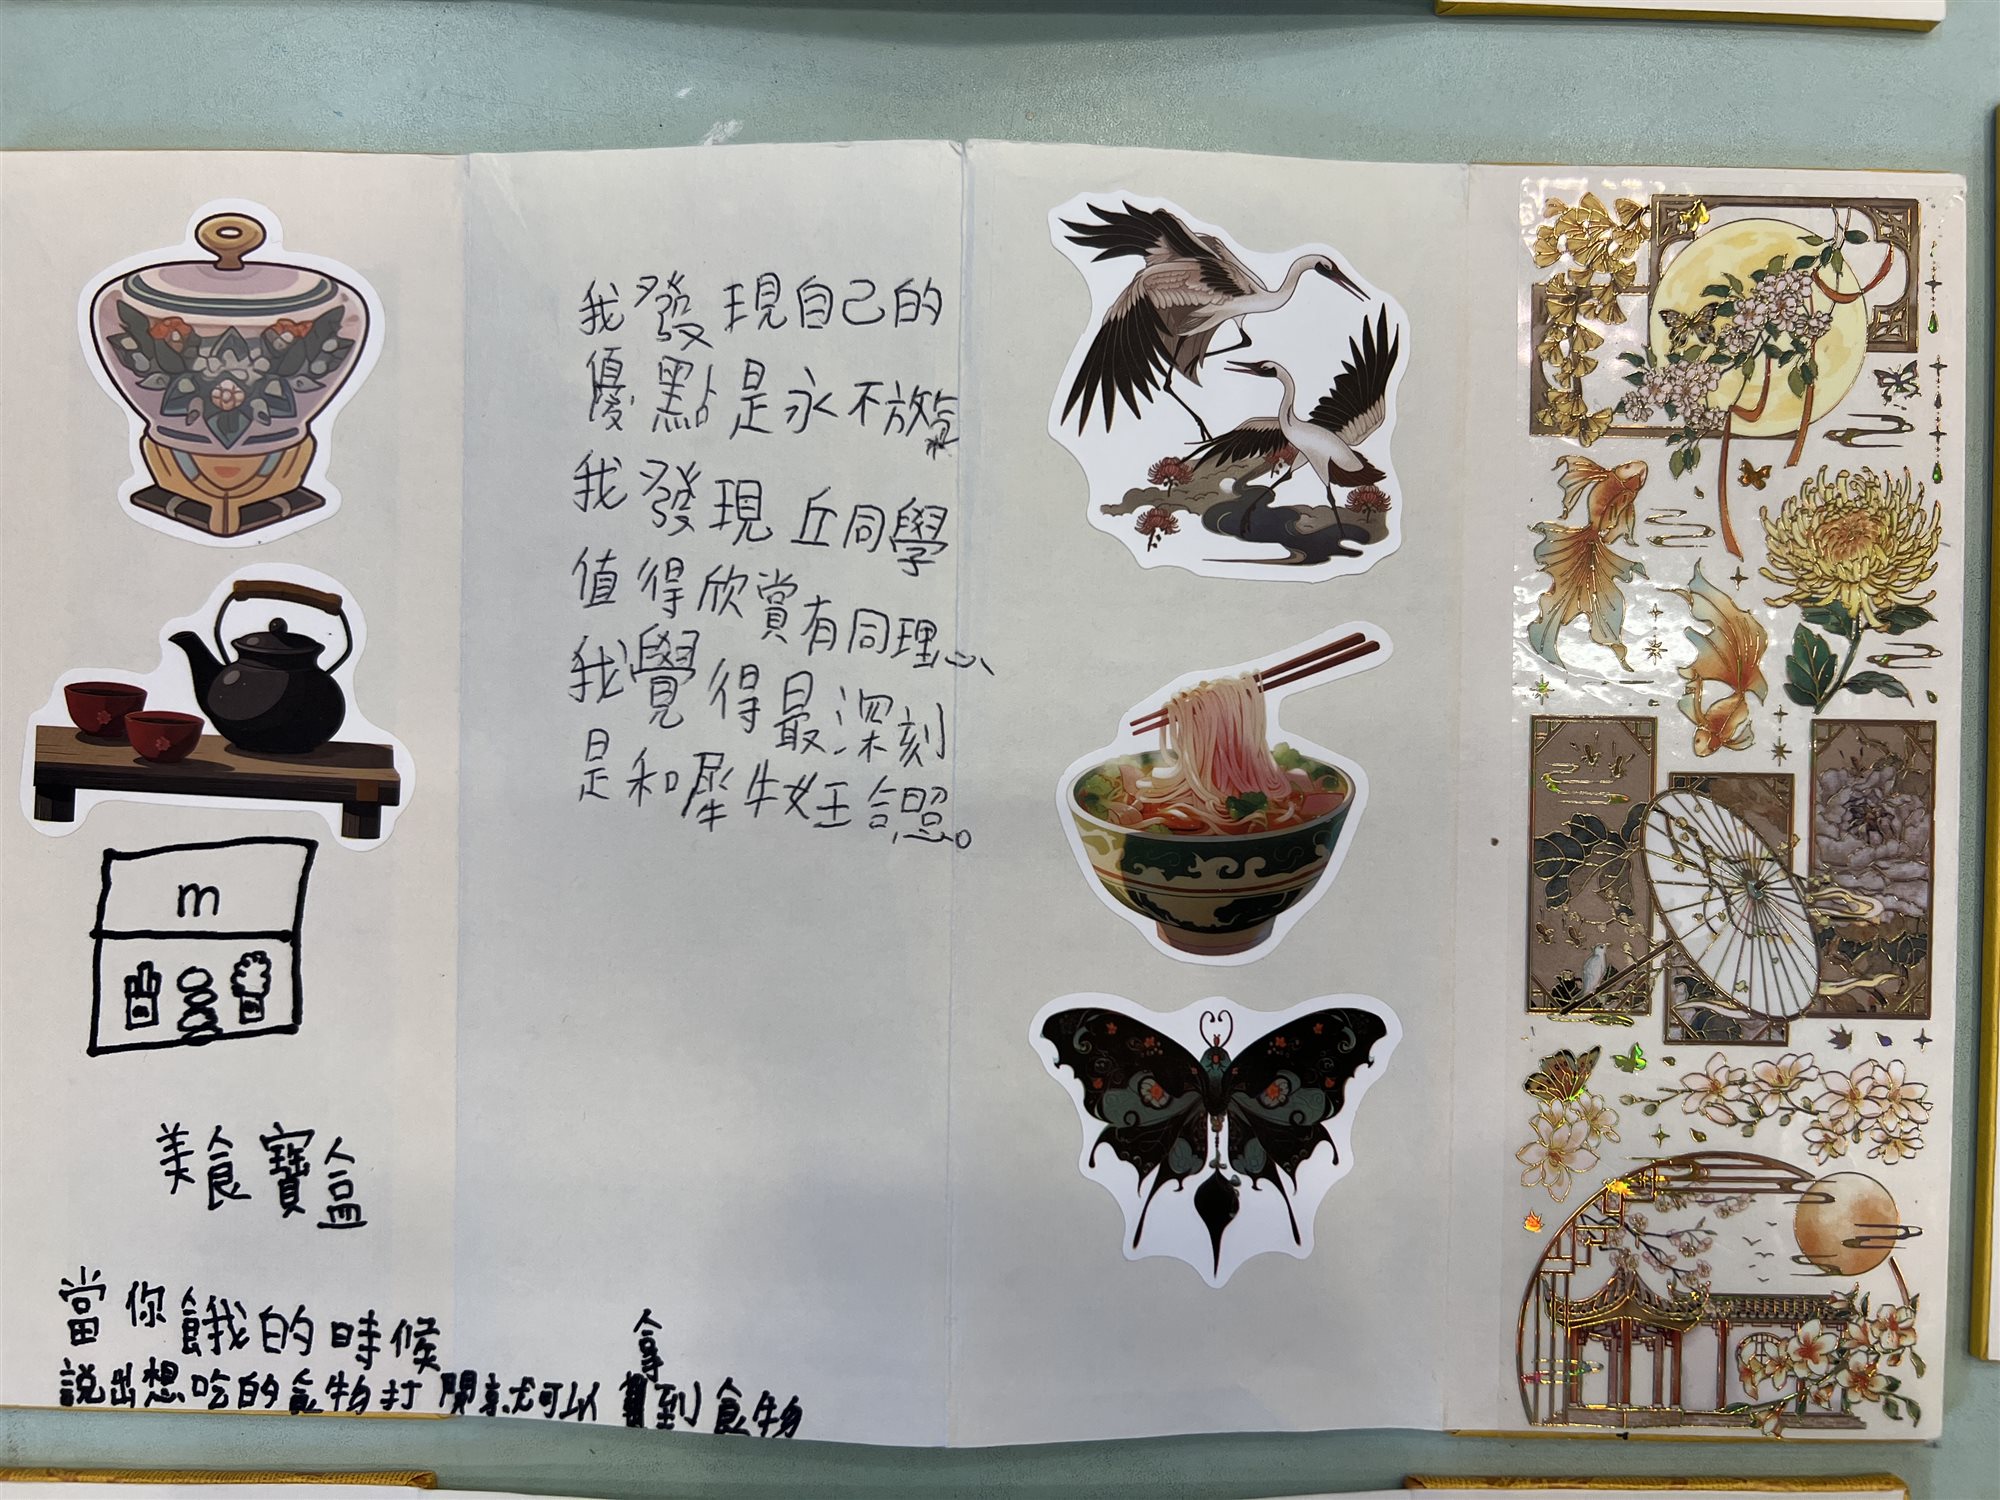 我發現自己的
優點是永不放棄
我發現丘同學
值得欣賞有同理心、
我覺得最深刻
是和犀牛女王合照。
m
美食寶盒
當你餓的時候
說出想吃的食物打開就可以拿到食物